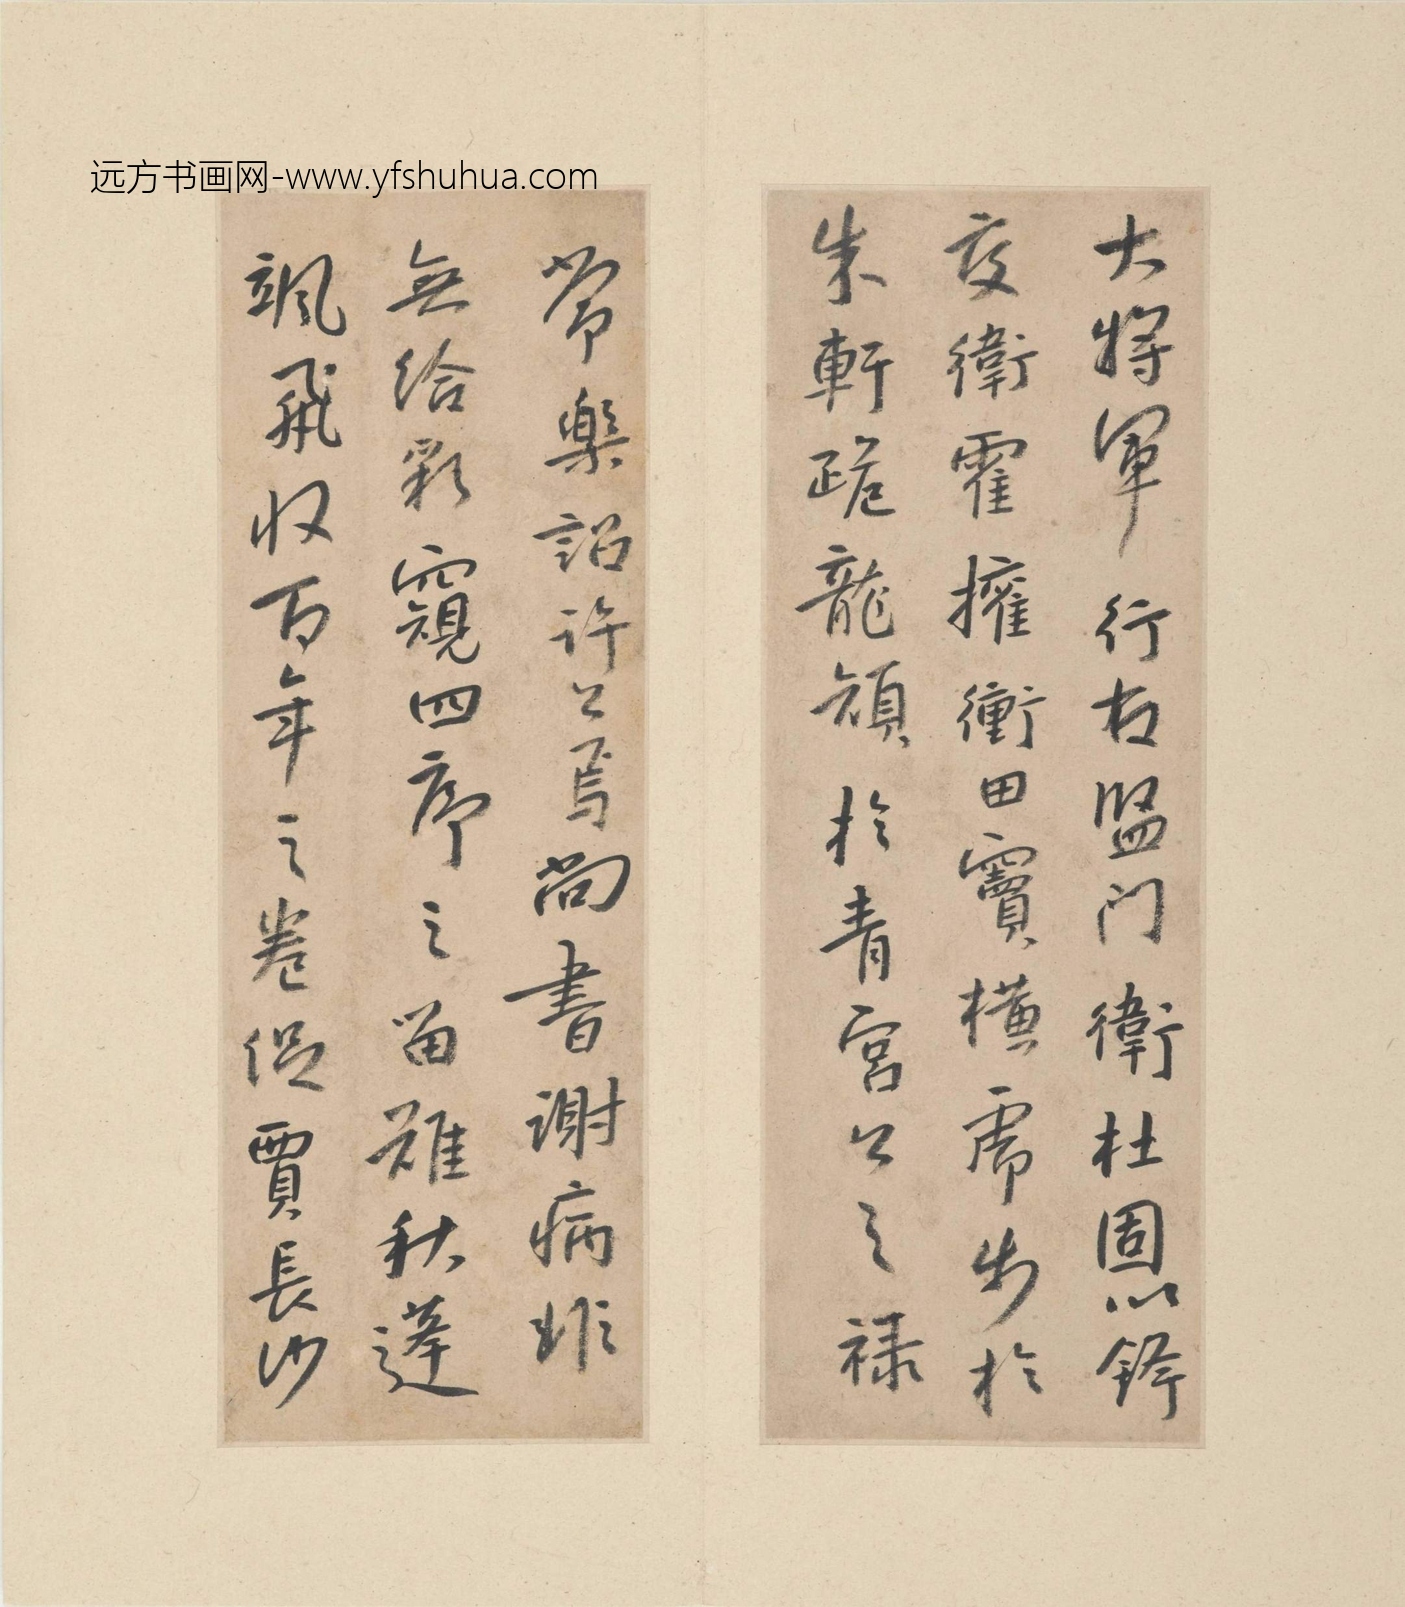 远方书画网-www.yfshuhua.com
大將軍行右監門衛杜固以鋒
交衛霍權衡田竇橫虎步於
朱軒跪龍頷於青宮公之祿
常樂詔許公焉尚書謝病非
無給彩窺四序之留難秋蓬
颯飛收百年之卷促賈長沙